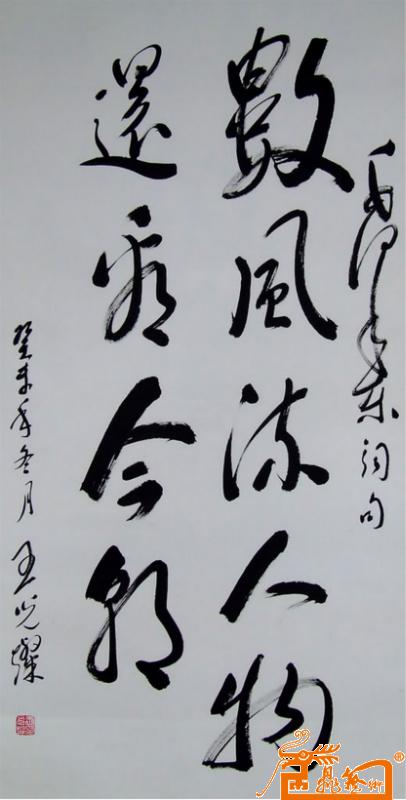 毛泽东詞句
數風流人物
還看今朝
癸未年冬月 王光燦